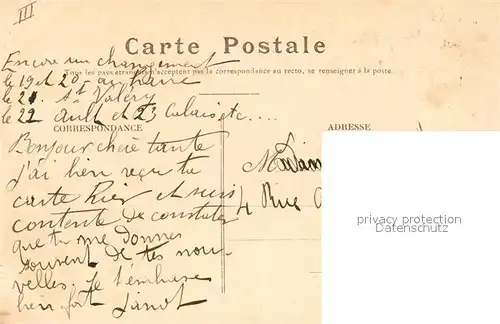 III
Carte Postale
Tous les pays étrangers n'acceptent pas la correspondance au recto, se renseigner à la poste.
Encore un changement
le 19 et 20 au Havre
le 21 St Valéry
le 22 Ault et 23 Calais etc....
CORRESPONDANCE
ADRESSE
Bonjour chère tante
j'ai bien reçu ta
carte hier et suis
contente de constater
que tu me donnes
souvent de tes nou-
velles. Je t'embrasse
bien fort
Madam
4 Rue
privacy protection
Datenschutz